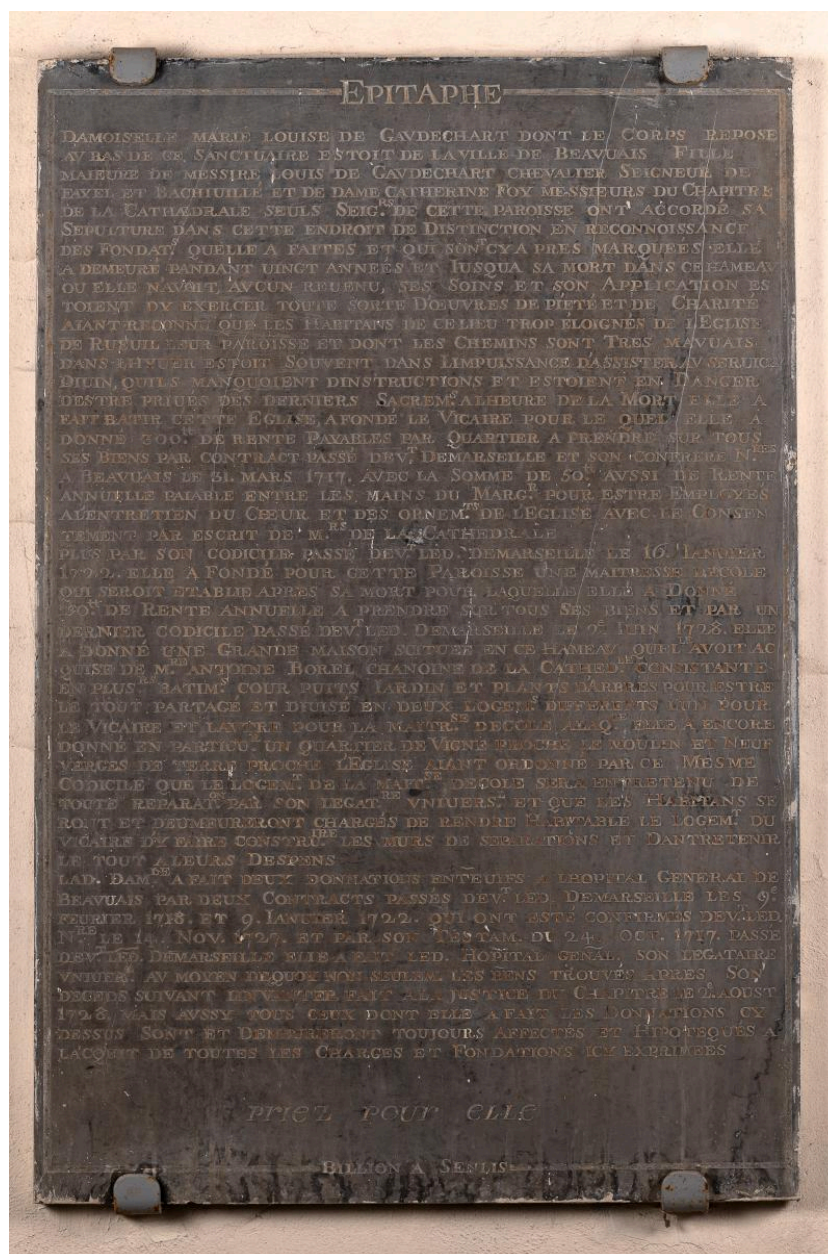 EPITAPHE
DAMOISELLE MARIE LOUISE DE GAVDECHART DONT LE CORPS REPOSE
AV BAS DE CE SANCTUAIRE ESTOIT DE LA VILLE DE BEAVUAIS FILLE
MAIEURE DE MESSIRE LOUIS DE GAVDECHART CHEVALIER SEIGNEUR DE
FAYEL ET BACHIUILLE ET DE DAME CATHERINE FOY MESSIEURS DU CHAPITRE
DE LA CATHEDRALE SEULS SEIG.RS DE CETTE PAROISSE ONT ACCORDÉ SA
SEPULTURE DANS CETTE ENDROIT DE DISTINCTION EN RECONNOISSANCE
DES FONDAT.S QUELLE A FAITES ET QUI SONT CY APRES MARQUEES ELLE
A DEMEURÉ PANDANT UINGT ANNEES ET IUSQUA SA MORT DANS CE HAMEAV
OU ELLE NAVOIT AVCUN REUENU, SES SOINS ET SON APPLICATION ES
TOIENT DY EXERCER TOUTE SORTE DŒUVRES DE PIETÉ ET DE CHARITÉ
AIANT REDONNÉ QUE LES HABITANS DE CE LIEU TROP ÉLOIGNÉS DE LEGLISE
DE RUEUIL LEUR PAROISSE ET DONT LES CHEMINS SONT TRES MAVUAIS
DANS LHYUER ESTOIT SOUVENT DANS LIMPUISSANCE DASSISTER AV SERUICE
DIUIN, QUILS MANQUOIENT DINSTRUCTIONS ET ESTOIENT EN DANGER
DESTRE PRIUES DES DERNIERS SACREM.S ALHEURE DE LA MORT ELLE A
FAIT BATIR CETTE EGLISE, A FONDÉ LE VICAIRE POUR LE QUEL ELLE A
DONNÉ 300.tt DE RENTE PAYABLES PAR QUARTIER A PRENDRE SUR TOUS
SES BIENS PAR CONTRACT PASSÉ DEV.T DEMARSEILLE ET SON CONFRERE N.RES
A BEAVUAIS LE 31. MARS 1717. AVEC LA SOMME DE 50.t AVSSI DE RENTE
ANNUELLE PAIABLE ENTRE LES MAINS DU MARG.R POUR ESTRE EMPLOYÉS
ALENTRETIEN DU CŒUR ET DES ORNEM.TS DE LEGLISE AVEC LE CONSEN
TEMENT PAR ESCRIT DE M.RS DE LA CATHEDRALE
PLUS PAR SON CODICILE PASSÉ DEV.T LED. DEMARSEILLE LE 16. IANUIER
1722. ELLE A FONDÉ POUR CETTE PAROISSE UNE MAITRESSE DECOLE
QUI SEROIT ETABLIE APRES SA MORT POUR LAQUELLE ELLE A DONNÉ
50.tt DE RENTE ANNUELLE A PRENDRE SUR TOUS SES BIENS ET PAR UN
DERNIER CODICILE PASSÉ DEV.T LED. DEMARSEILLE LE 2.e IUIN 1728. ELLE
A DONNÉ UNE GRANDE MAISON SCITUÉE EN CE HAMEAV QUELL'AVOIT AC
QUISE DE M.RE ANTOINE BOREL CHANOINE DE LA CATHED.LE CONSISTANTE
EN PLUS.RS BATIM.S COUR PUITS IARDIN ET PLANTS DARBRES POUR ESTRE
LE TOUT PARTAGÉ ET DIUISÉ EN DEUX LOGE.S DIFFERENTS LUN POUR
LE VICAIRE ET LAVTRE POUR LA MAITR.SE DECOLE ALAQ.E ELLE A ENCORE
DONNÉ EN PARTICU.R UN QUARTIER DE VIGNE PROCHE LE MOULIN ET NEUF
VERGES DE TERRE PROCHE LEGLISE AIANT ORDONNÉ PAR CE MESME
CODICILE QUE LE LOGEM.T DE LA MAIT.SE DECOLE SERA ENTRETENU DE
TOUTE REPARAT. PAR SON LEGAT.RE VNIUERS. ET QUE LES HABITANS SE
RONT ET DEUMEURERONT CHARGÉS DE RENDRE HABITABLE LE LOGEM.T DU
VICAIRE DY FAIRE CONSTRU.IRE LES MURS DE SEPARATIONS ET DANTRETENIR
LE TOUT A LEURS DESPENS
LAD. DAM.LE A FAIT DEUX DONNATIONS ENTEUIFS A LHOPITAL GENERAL DE
BEAVUAIS PAR DEUX CONTRACTS PASSÉS DEV.T LED. DEMARSEILLE LES 9.e
FEURIER 1718. ET 9. IANUIER 1722. QUI ONT ESTÉ CONFIRMÉS DEV. LED.
N.RE LE 14. NOV. 1727. ET PAR SON TESTAM. DU 24. OCT. 1717. PASSÉ
DEV.T LED. DEMARSEILLE ELLE A FAIT LED. HOPITAL GENAL. SON LEGATAIRE
VNIUER. AV MOYEN DEQUOY NON SEULEM. LES BENS TROUVÉS APRES SON
DECEDS SUIVANT LINVENTER FAIT A LA JUSTICE DU CHAPITRE LE 2. AOUST
1728, MAIS AVSSY TOUS CEUX DONT ELLE A FAIT LES DONNATIONS CY
DESSUS SONT ET DEMEURERONT TOUJOURS AFFECTÉS ET HIPOTEQUÉS A
LACQUIT DE TOUTES LES CHARGES ET FONDATIONS ICY EXPRIMEES
PRIEZ POUR ELLE
BILLION A SENLIS